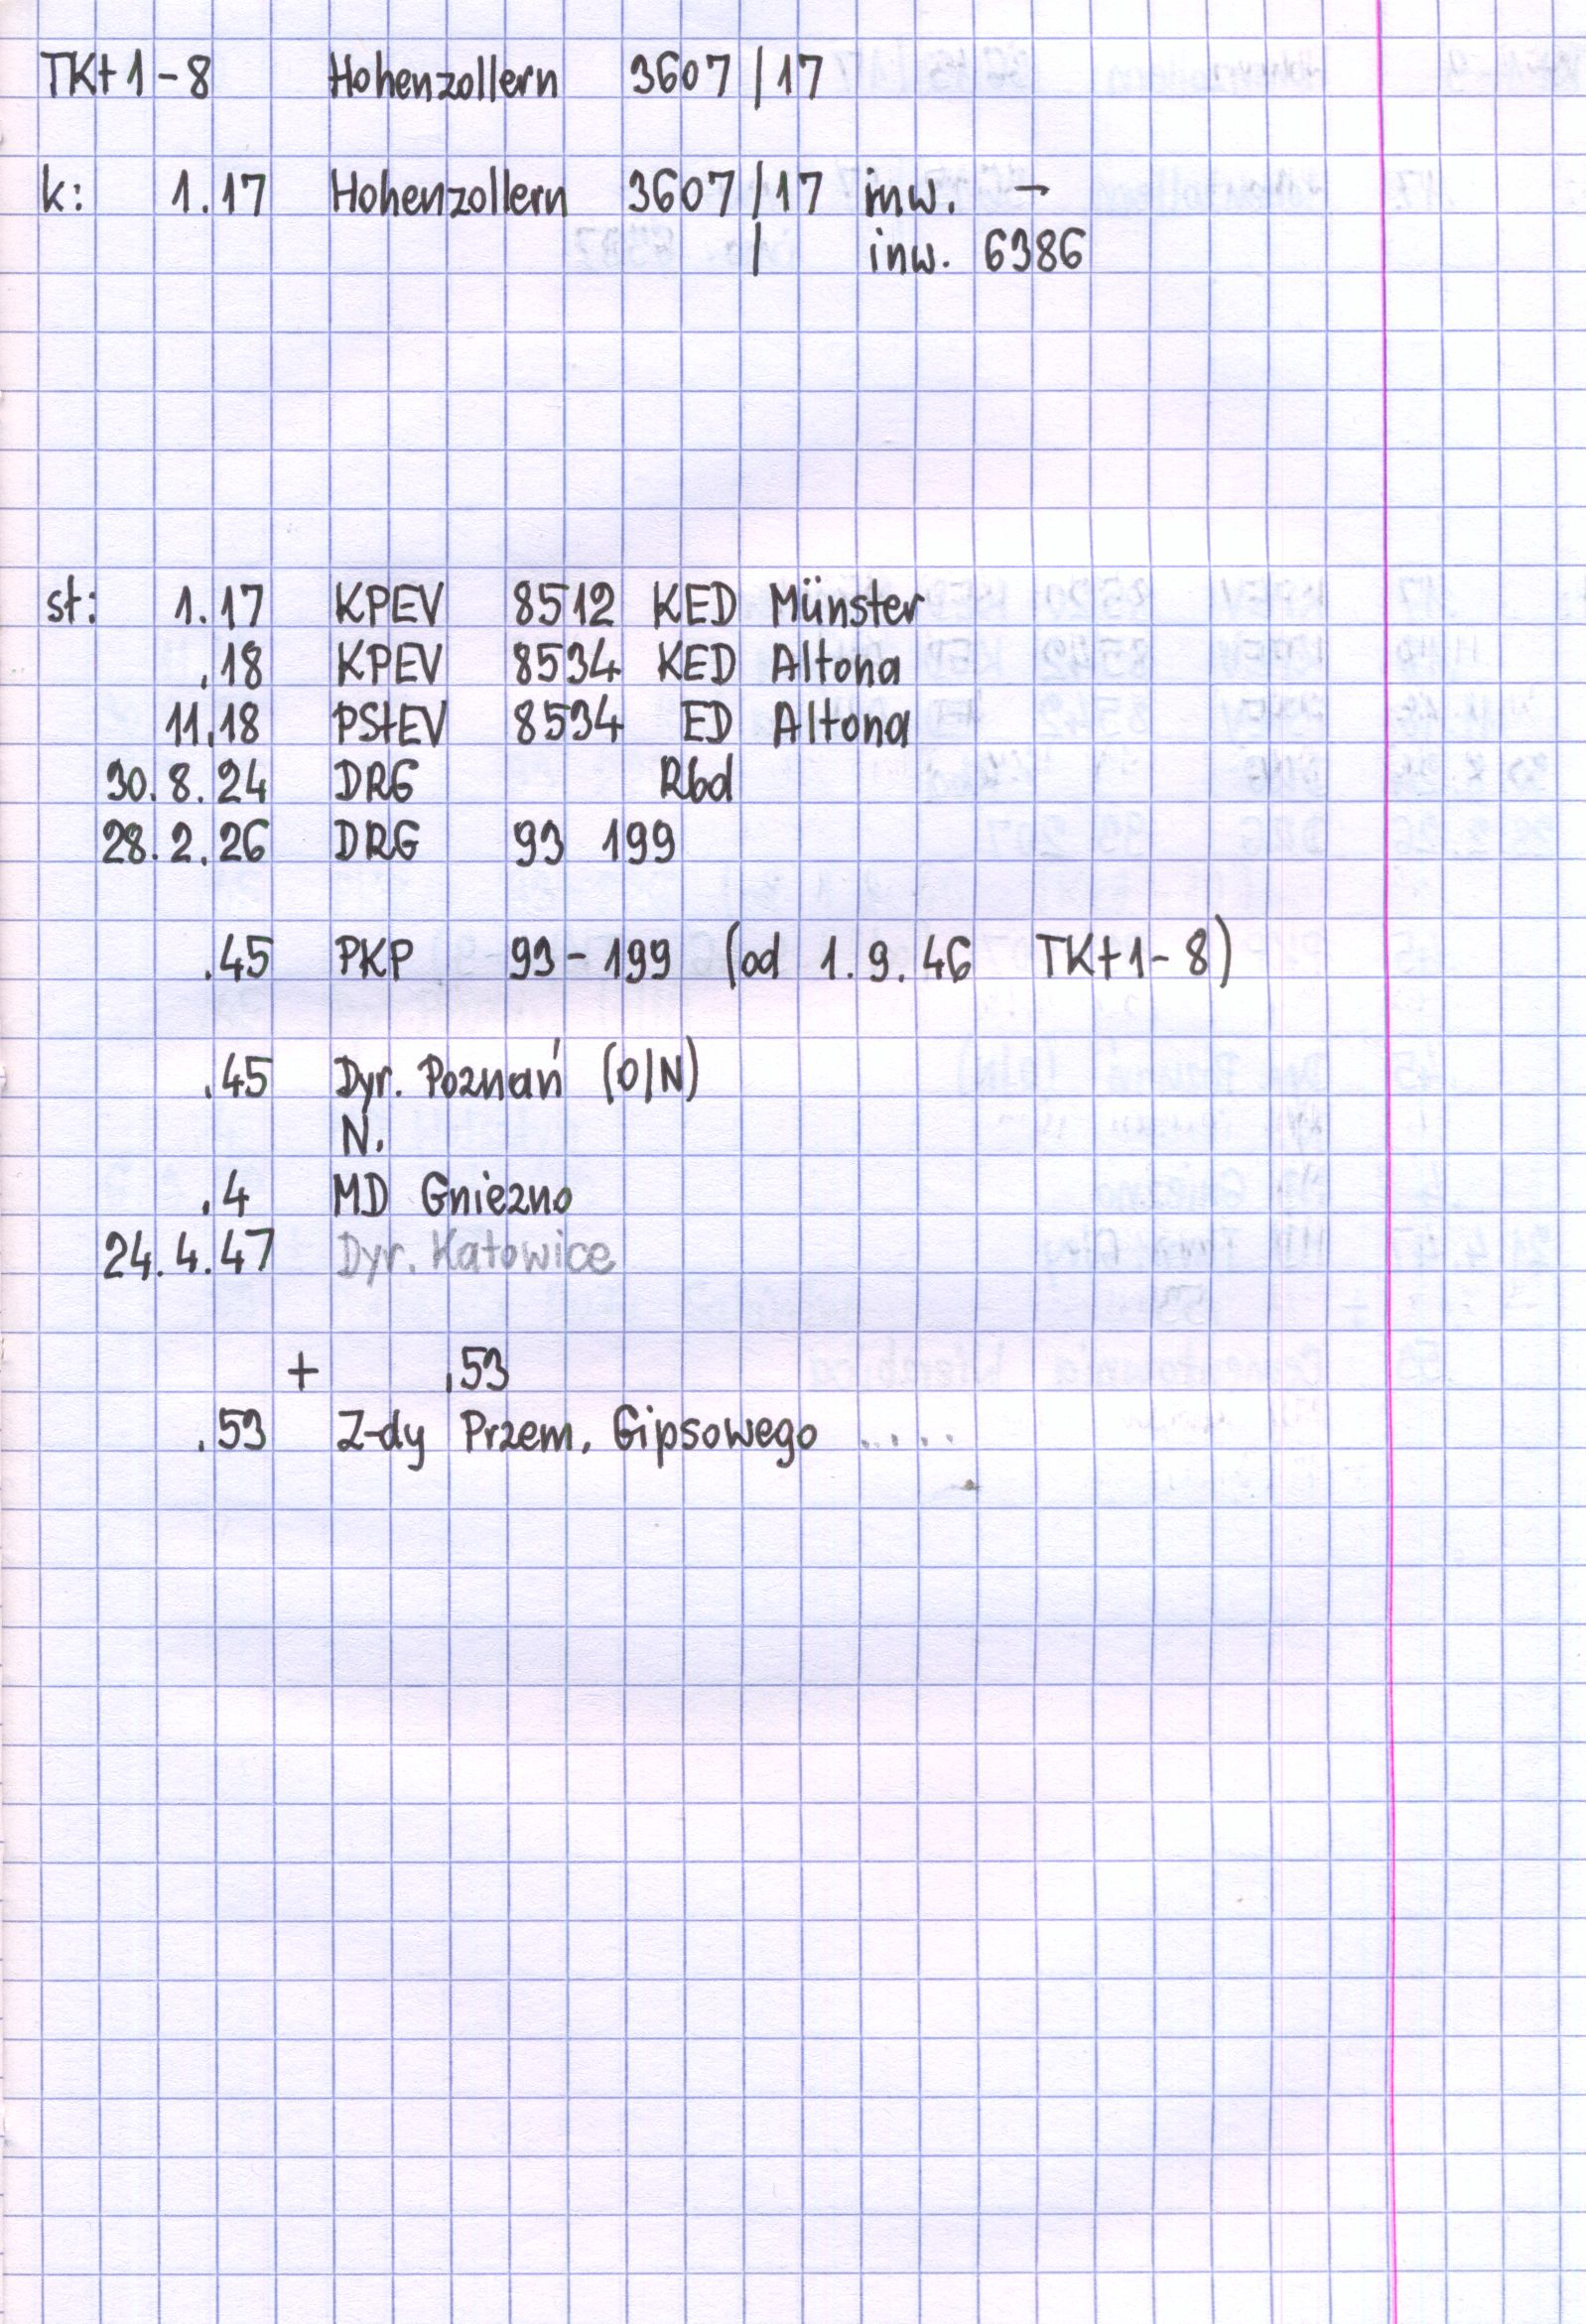 TKt1-8 Hohenzollern 3607/17
k: 1.17 Hohenzollern 3607/17 inw. -
/ inw. 6386
st: 1.17 KPEV 8512 KED Münster
.18 KPEV 8534 KED Altona
11.18 PStEV 8534 ED Altona
30.8.24 DRG Rbd
28.2.26 DRG 93 199
.45 PKP 93-199 (od 1.9.46 TKt1-8)
.45 Dyr. Poznań (O/N)
N.
.4 MD Gniezno
24.4.47 Dyr. Katowice
+ .53
.53 Z-dy Przem. Gipsowego ....